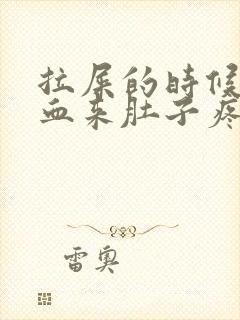 拉屎的时候
血来肚子疼
雷奥